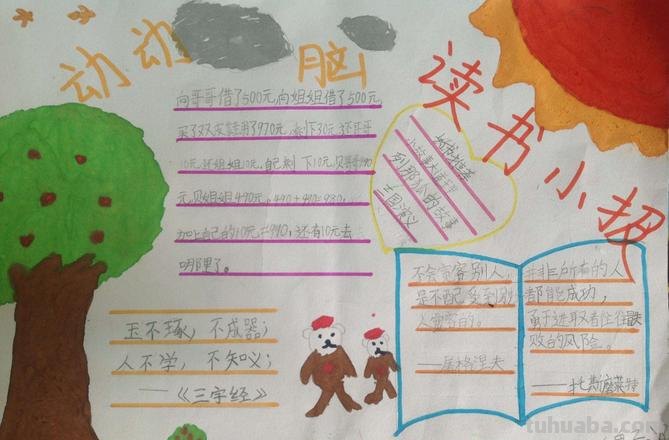 动动脑
读书小报
向哥哥借了500元,向姐姐借了500元,
买了双皮鞋用了970元,剩下30元,还哥哥
10元,还姐姐10元,自己剩下10元,欠哥哥490
元,欠姐姐490元,490+490=980,
加上自己的10元=990,还有10元去
哪里了。
好书推荐
列那狐的故事
三国演义
玉不琢,不成器;
人不学,不知义;
——《三字经》
不会宽容别人,
是不配受到别
人宽容的。
——屠格涅夫
并非所有的人
都能成功,
勇于进取者往往
败的风险。
tuhuaba.com